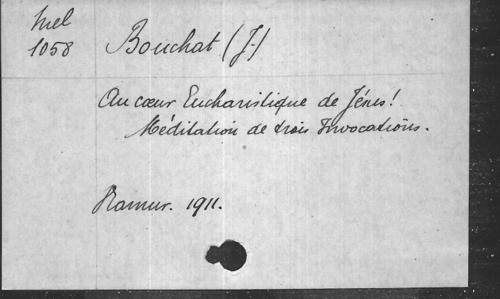 Mel
1058
Bouchat (J.)
Au cœur Eucharistique de Jésus!
Méditation de trois Invocations.
Namur. 1911.